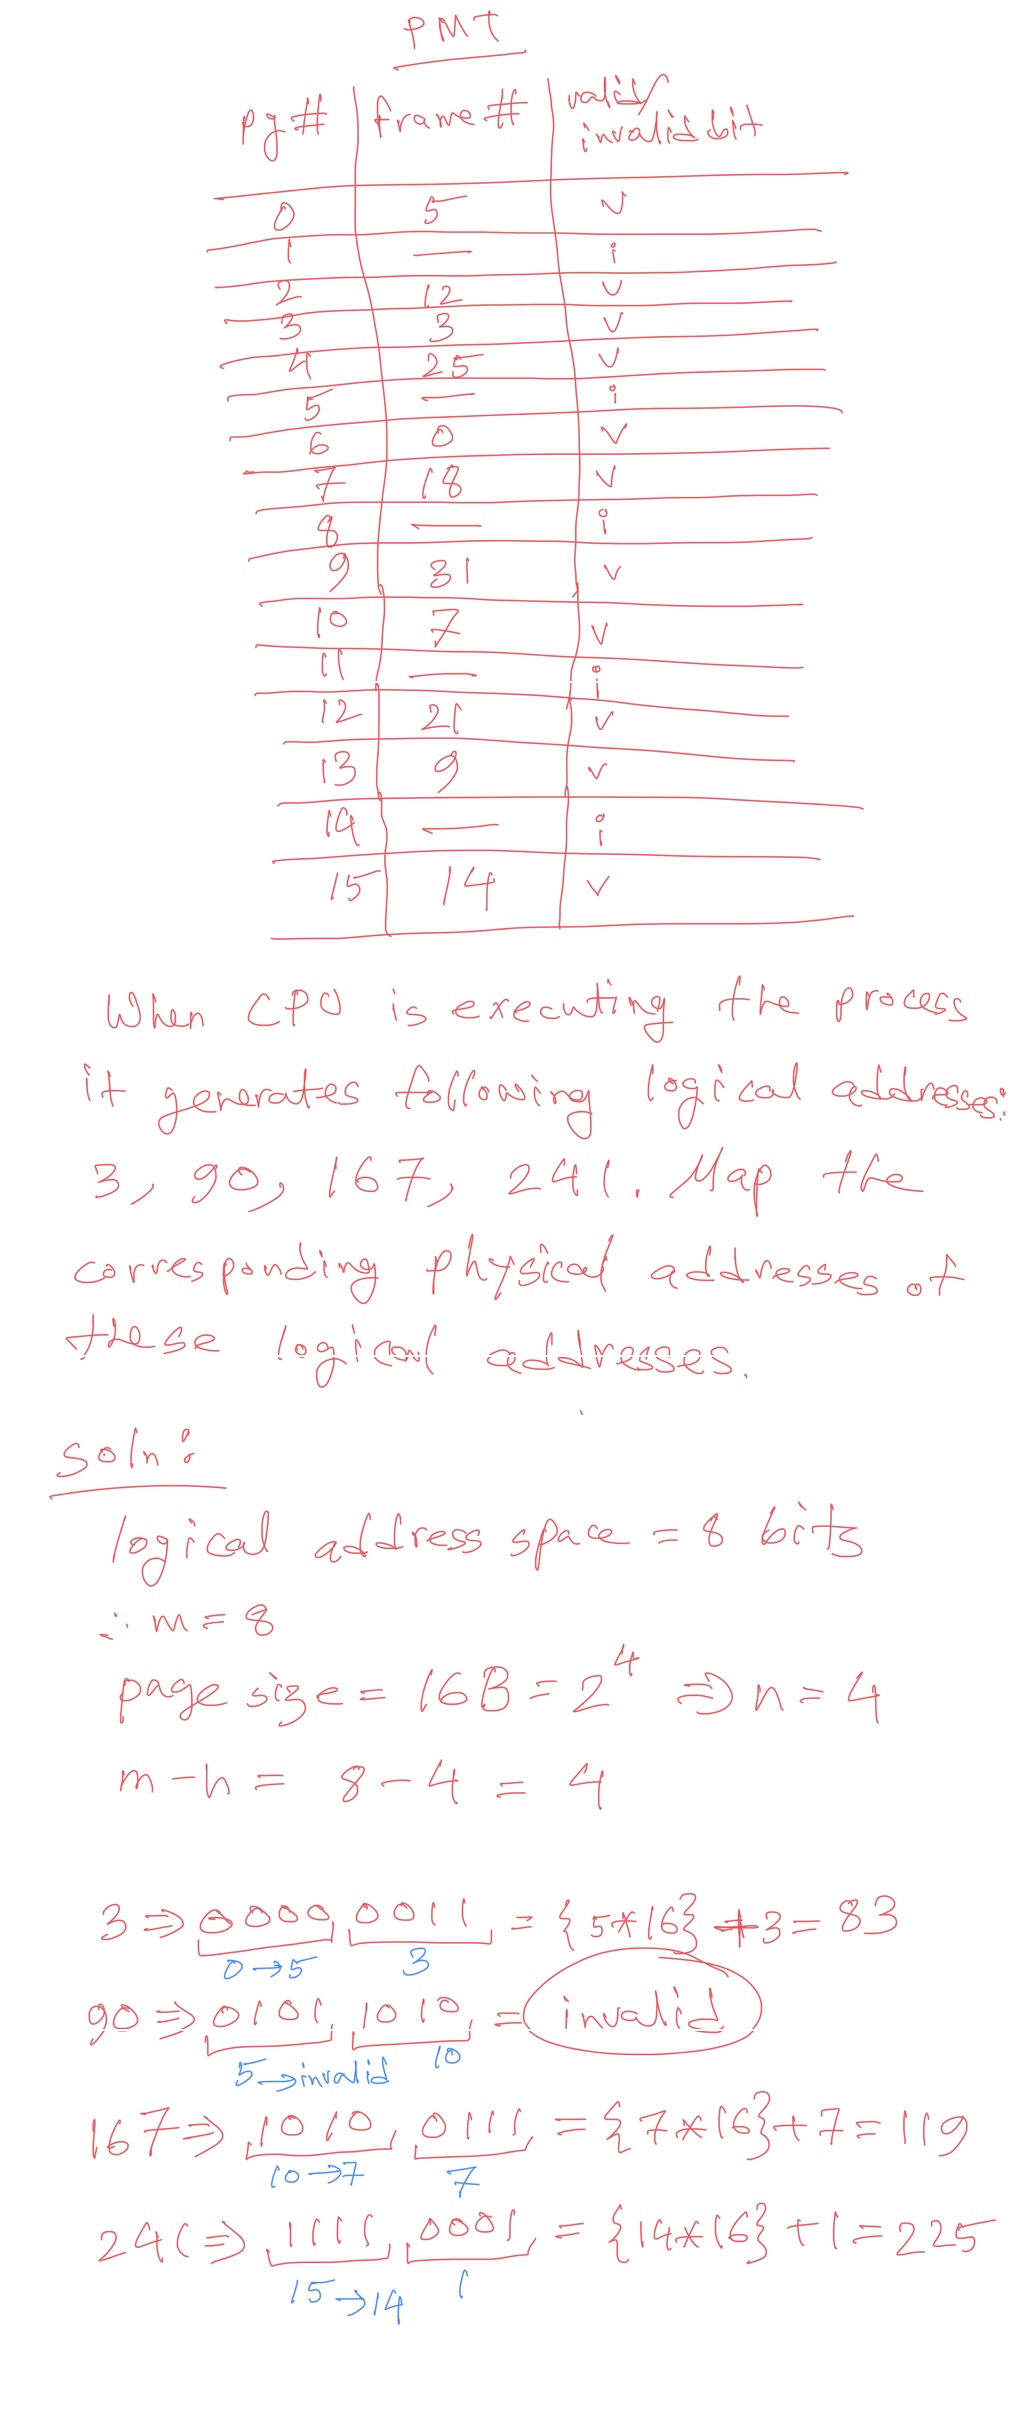 PMT
pg# frame# valid/
invalid bit
0 5 v
1 — i
2 12 v
3 3 v
4 25 v
5 — i
6 0 v
7 18 v
8 — i
9 31 v
10 7 v
11 — i
12 21 v
13 9 v
14 — i
15 14 v
When CPU is executing the process
it generates following logical addresses:
3, 90, 167, 241. Map the
corresponding physical addresses of
these logical addresses.
soln:
logical address space = 8 bits
∴ m = 8
page size = 16B = 2^4 ⇒ n = 4
m - n = 8 - 4 = 4
3 ⇒ 0000 0011 = {5*16} + 3 = 83
0→5 3
90 ⇒ 0101 1010 = invalid
5→invalid 10
167 ⇒ 1010 0111 = {7*16} + 7 = 119
10→7 7
241 ⇒ 1111 0001 = {14*16} + 1 = 225
15→14 1